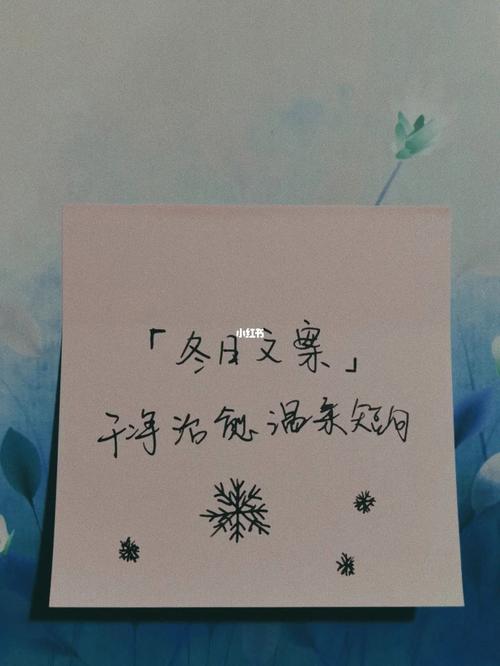 「冬日文案」
小红书
干净治愈温柔短句